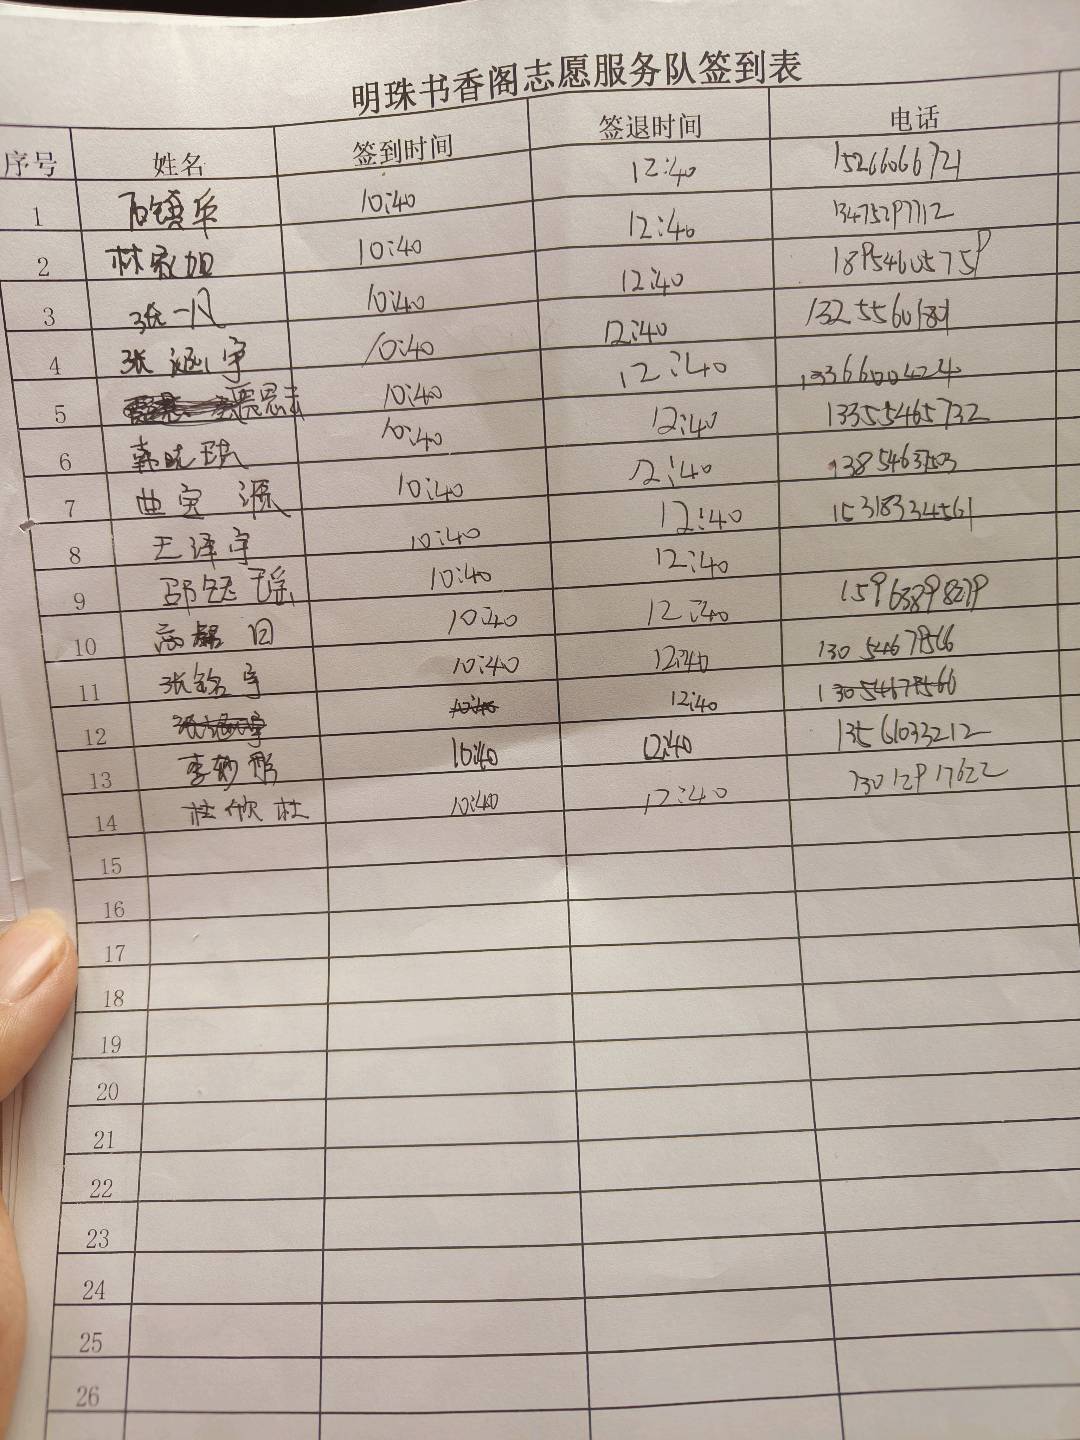 明珠书香阁志愿服务队签到表
序号 姓名 签到时间 签退时间 电话
1 10:40 12:40 15266066721
2 林家旭 10:40 12:40 13475297712
3 张一凡 10:40 12:40 18954605759
4 张涵宇 10:40 12:40
5 严思 10:40 12:40 13366000424
6 韩晓琪 10:40 12:40 13355465732
7 曲宝源 10:40 12:40
8 王泽宇 10:40 12:40 15318334561
9 邵钰瑶 10:40 12:40
10 高 10:40 12:40 15963898279
11 张铭宇 10:40 12:40 13054679566
12 12:40
13 李妙彤 10:40 12:40 13561033212
14 杜欣杜 10:40 12:40 13012917622
15
16
17
18
19
20
21
22
23
24
25
26